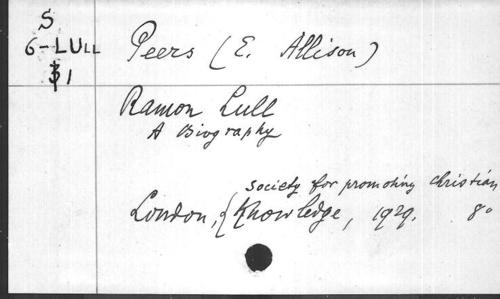 S
6-LULL
$1
Peers (E. Allison)
Ramon Lull
A Biography
Society for promoting Christian
London, { Knowledge, 1929. 8o